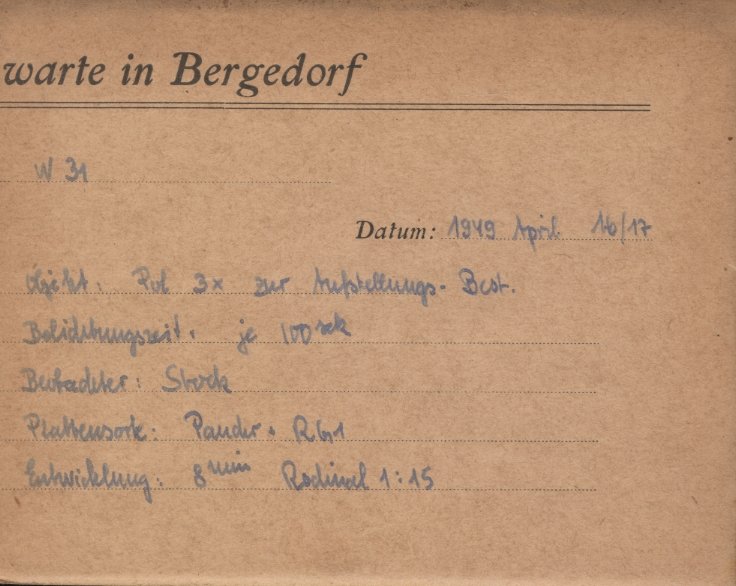 warte in Bergedorf
W 31
Datum: 1949 April 16/17
Objekt: Pol 3x zur Aufstellungs-Best.
Belichtungszeit: je 100 sek
Beobachter: Stock
Plattensorte: Panchr. RG1
Entwicklung: 8 min Rodinal 1:15